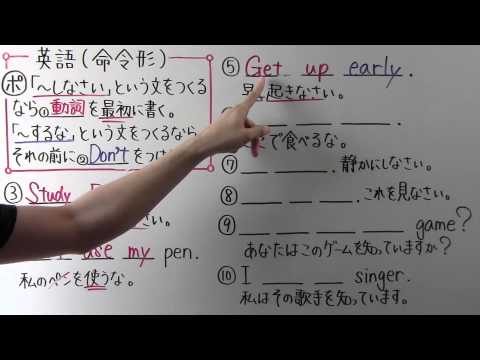 英語(命令形)
ポ「〜しなさい」という文をつくる
なら①動詞を最初に書く。
「〜するな」という文をつくるなら、
それの前に②Don'tをつけ
③ Study
い。
use my pen.
私のペンを使うな。
⑤ Get up early.
起きなさい。
で食べるな。
⑦ 静かにしなさい。
⑧ これを見なさい。
⑨ game?
あなたはこのゲームを知っていますか?
⑩ I singer.
私はその歌手を知っています。